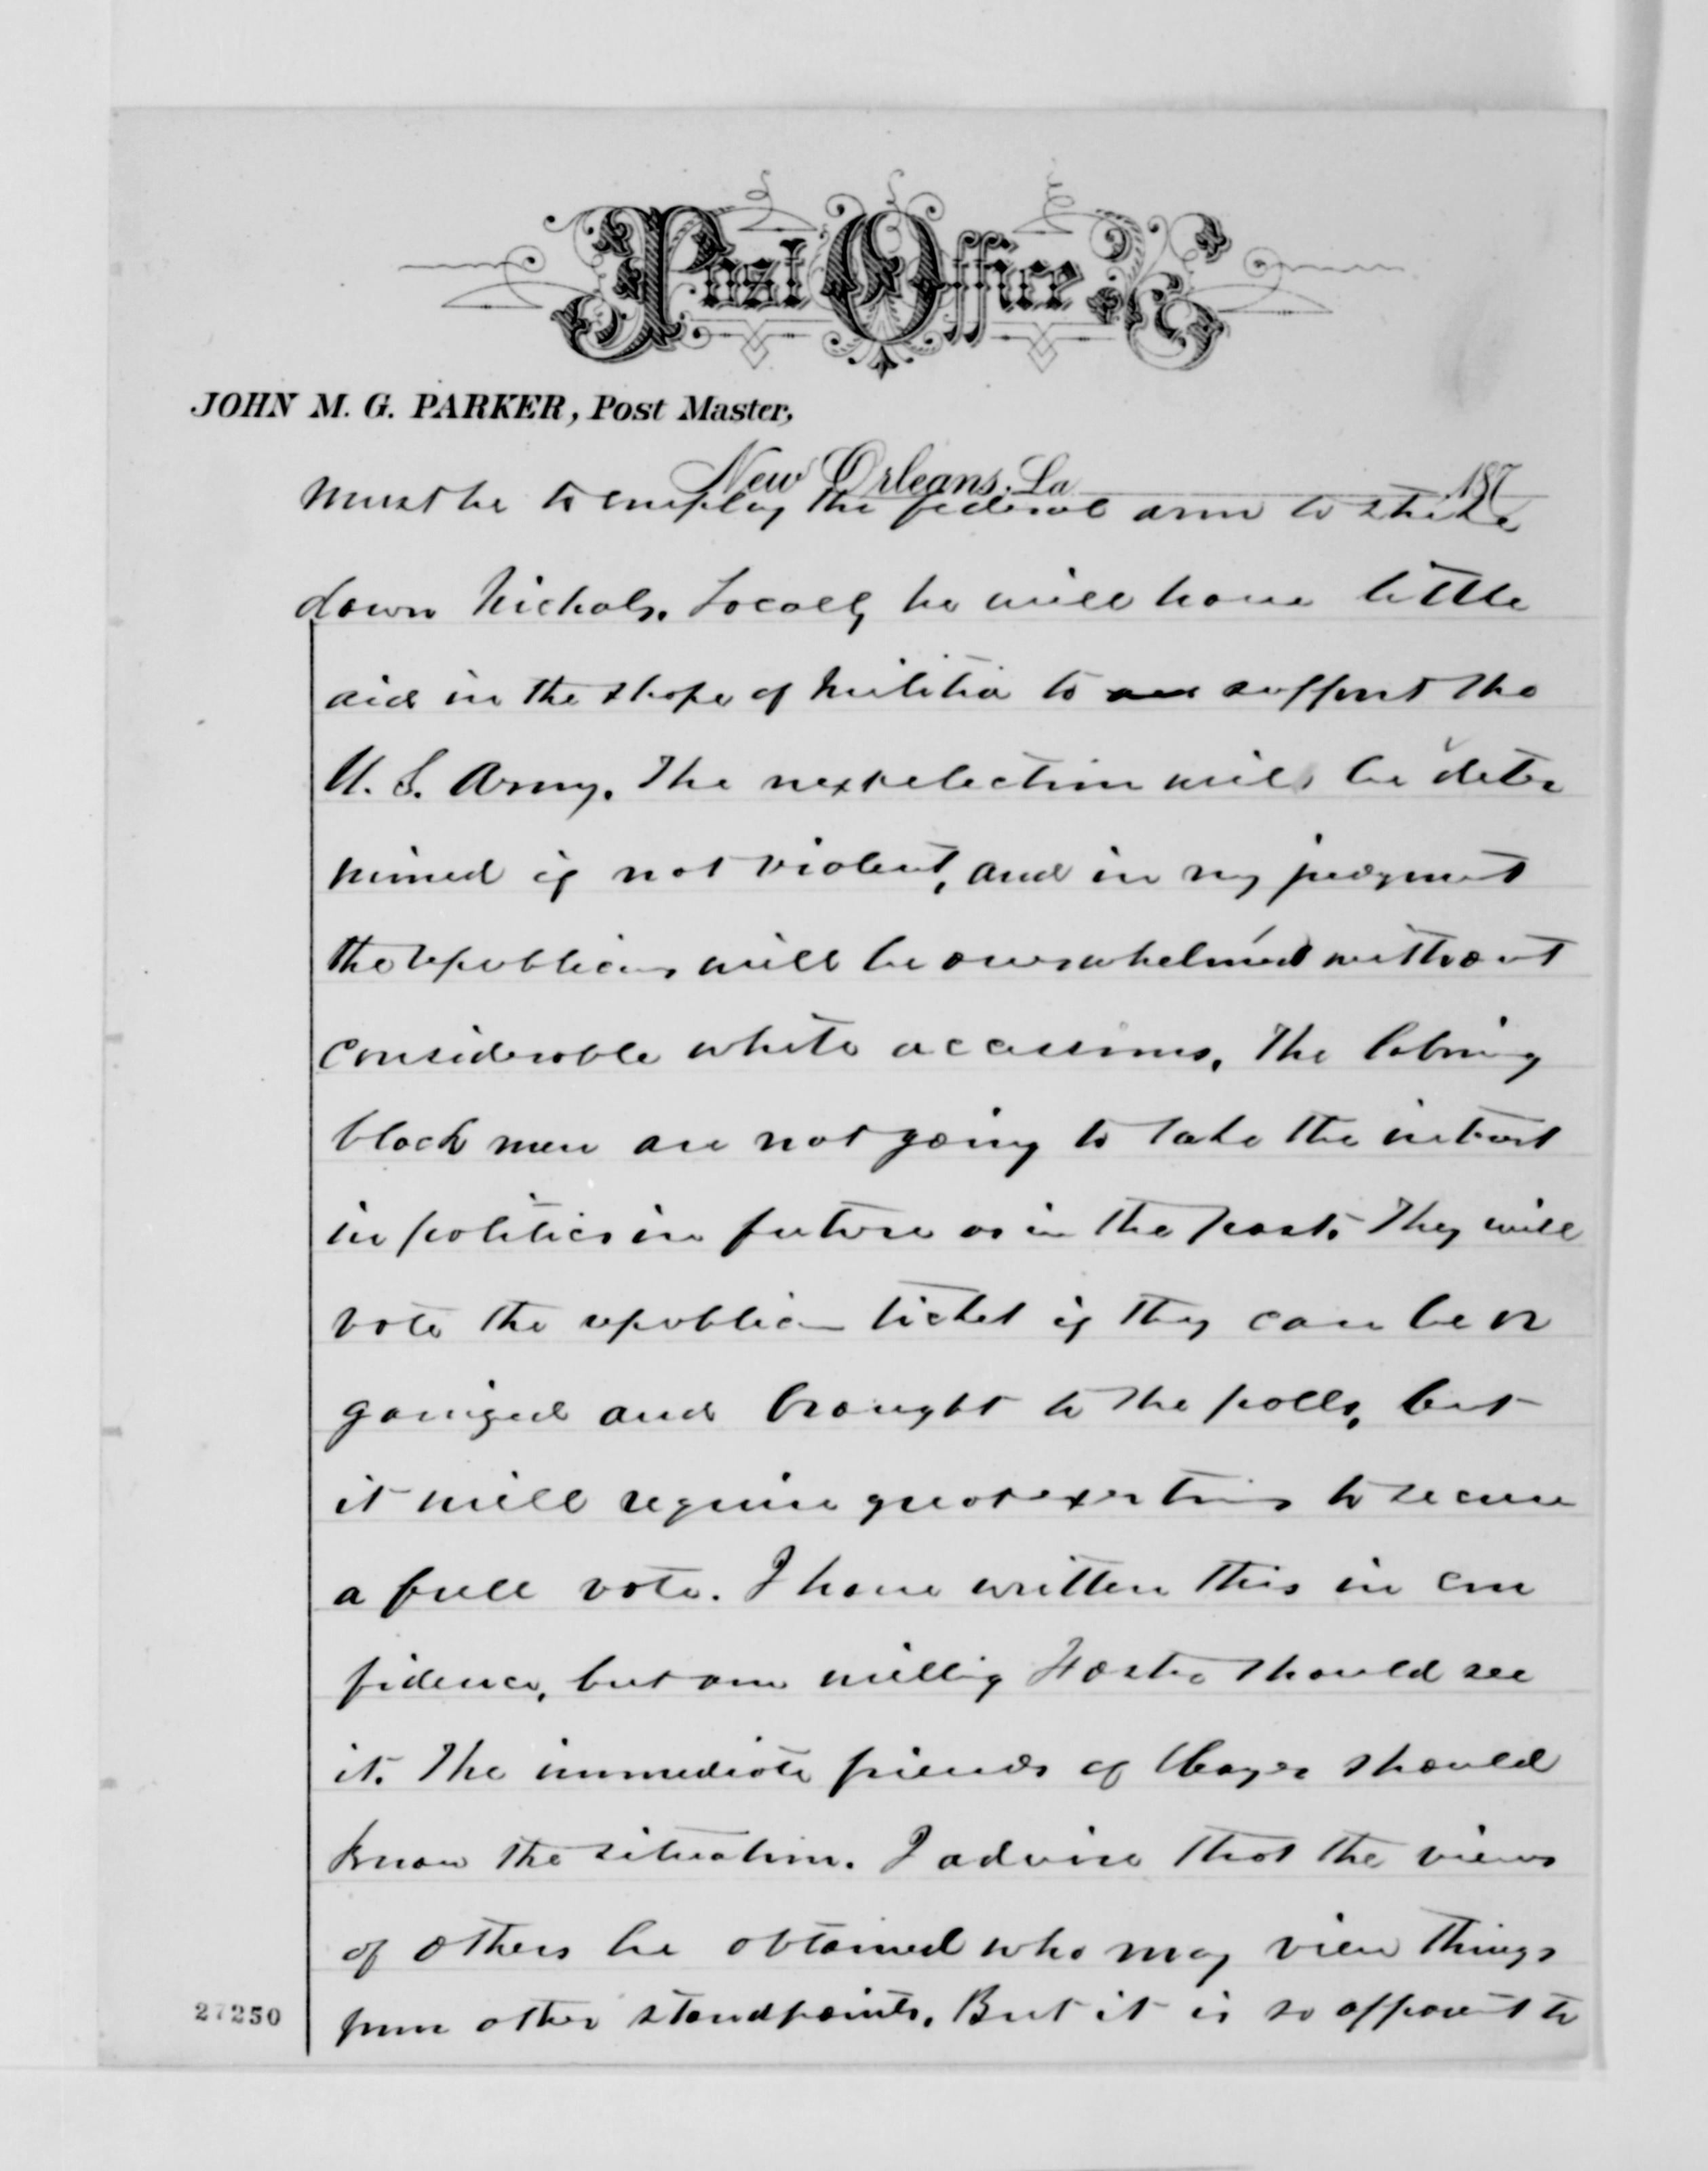 Post Office
JOHN M. G. PARKER, Post Master,
New Orleans, La 187
must be to employ the federal arm to strike
down Nichols. Locally he will have little
aid in the shape of militia to support the
U. S. Army. The next election will be deter
mined if not violent, and in my judgment
the republicans will be overwhelmed without
considerable white accessions. The laboring
black men are not going to take the interest
in politics in future as in the past. They will
vote the republican ticket if they can be or
ganized and brought to the polls, but
it will require great exertions to secure
a full vote. I have written this in con
fidence, but am willing Foster should see
it. The immediate friends of Hayes should
know the situation. I advise that the views
of others be obtained who may view things
from other standpoints. But it is so apparent to
27250